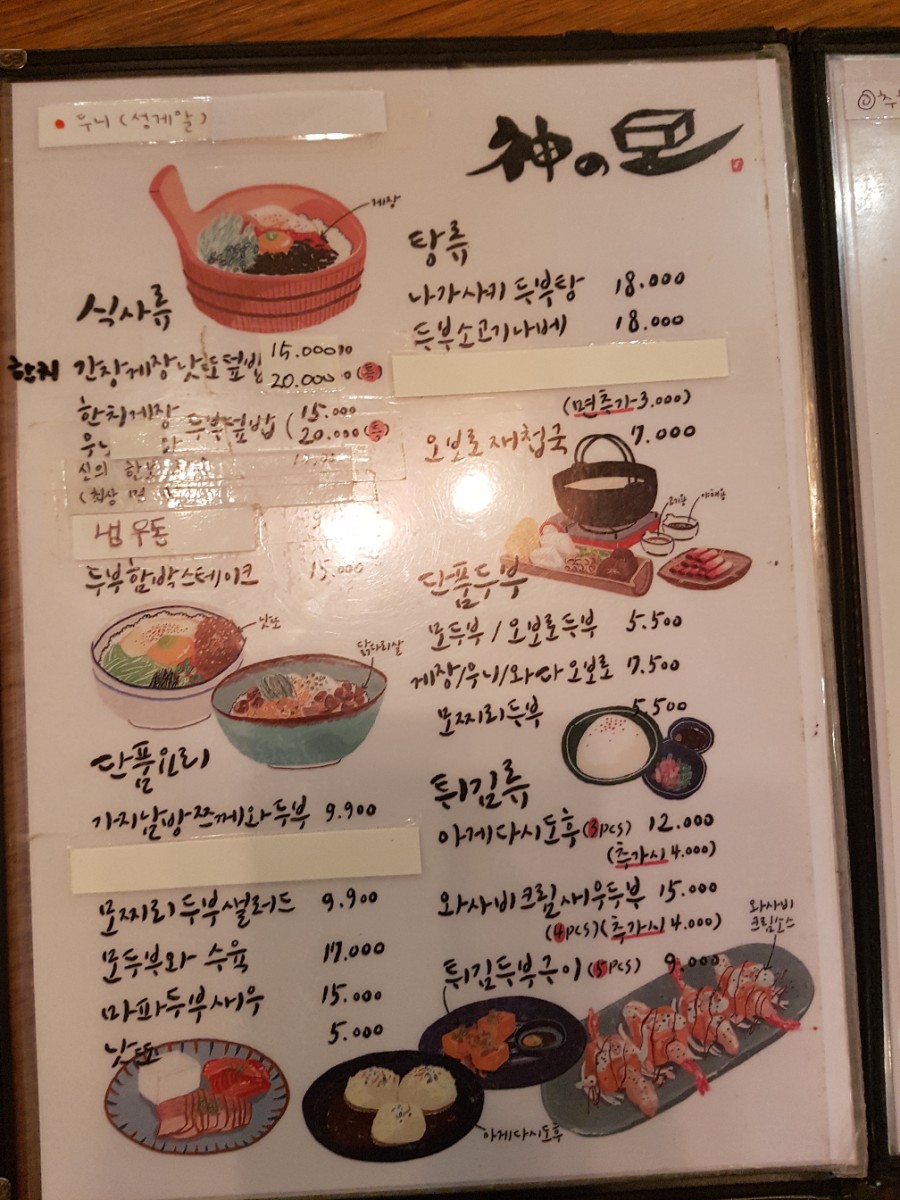 • 우니 (성게알)
神の모
게장
식사류
한치 간장게장낫또덮밥 15.000
20.000 (특)
한치게장 두부덮밥 ( 15.000
우니 20.000 (특)
신의
(최상
냄우동
두부함박스테이크 15.000
낫또
닭다리살
단품요리
가지날방쯔께와두부 9.900
모찌리두부샐러드 9.900
모두부와 수육 17.000
마파두부새우 15.000
낫또 5.000
탕류
나가사키 두부탕 18.000
두부소고기나베 18.000
(면추가 3.000)
오보로재첩국 7.000
고기용
야채용
단품두부
모두부 / 오보로두부 5.500
게장/우니/와다오보로 7.500
모찌리두부 5,500
튀김류
아게다시도후 (3pcs) 12.000
(추가시 4.000)
와사비크림새우두부 15.000
(4pcs)(추가시 4.000)
튀김두부튀이 (5pcs) 9.000
와사비
크림소스
아게다시도후
◎추